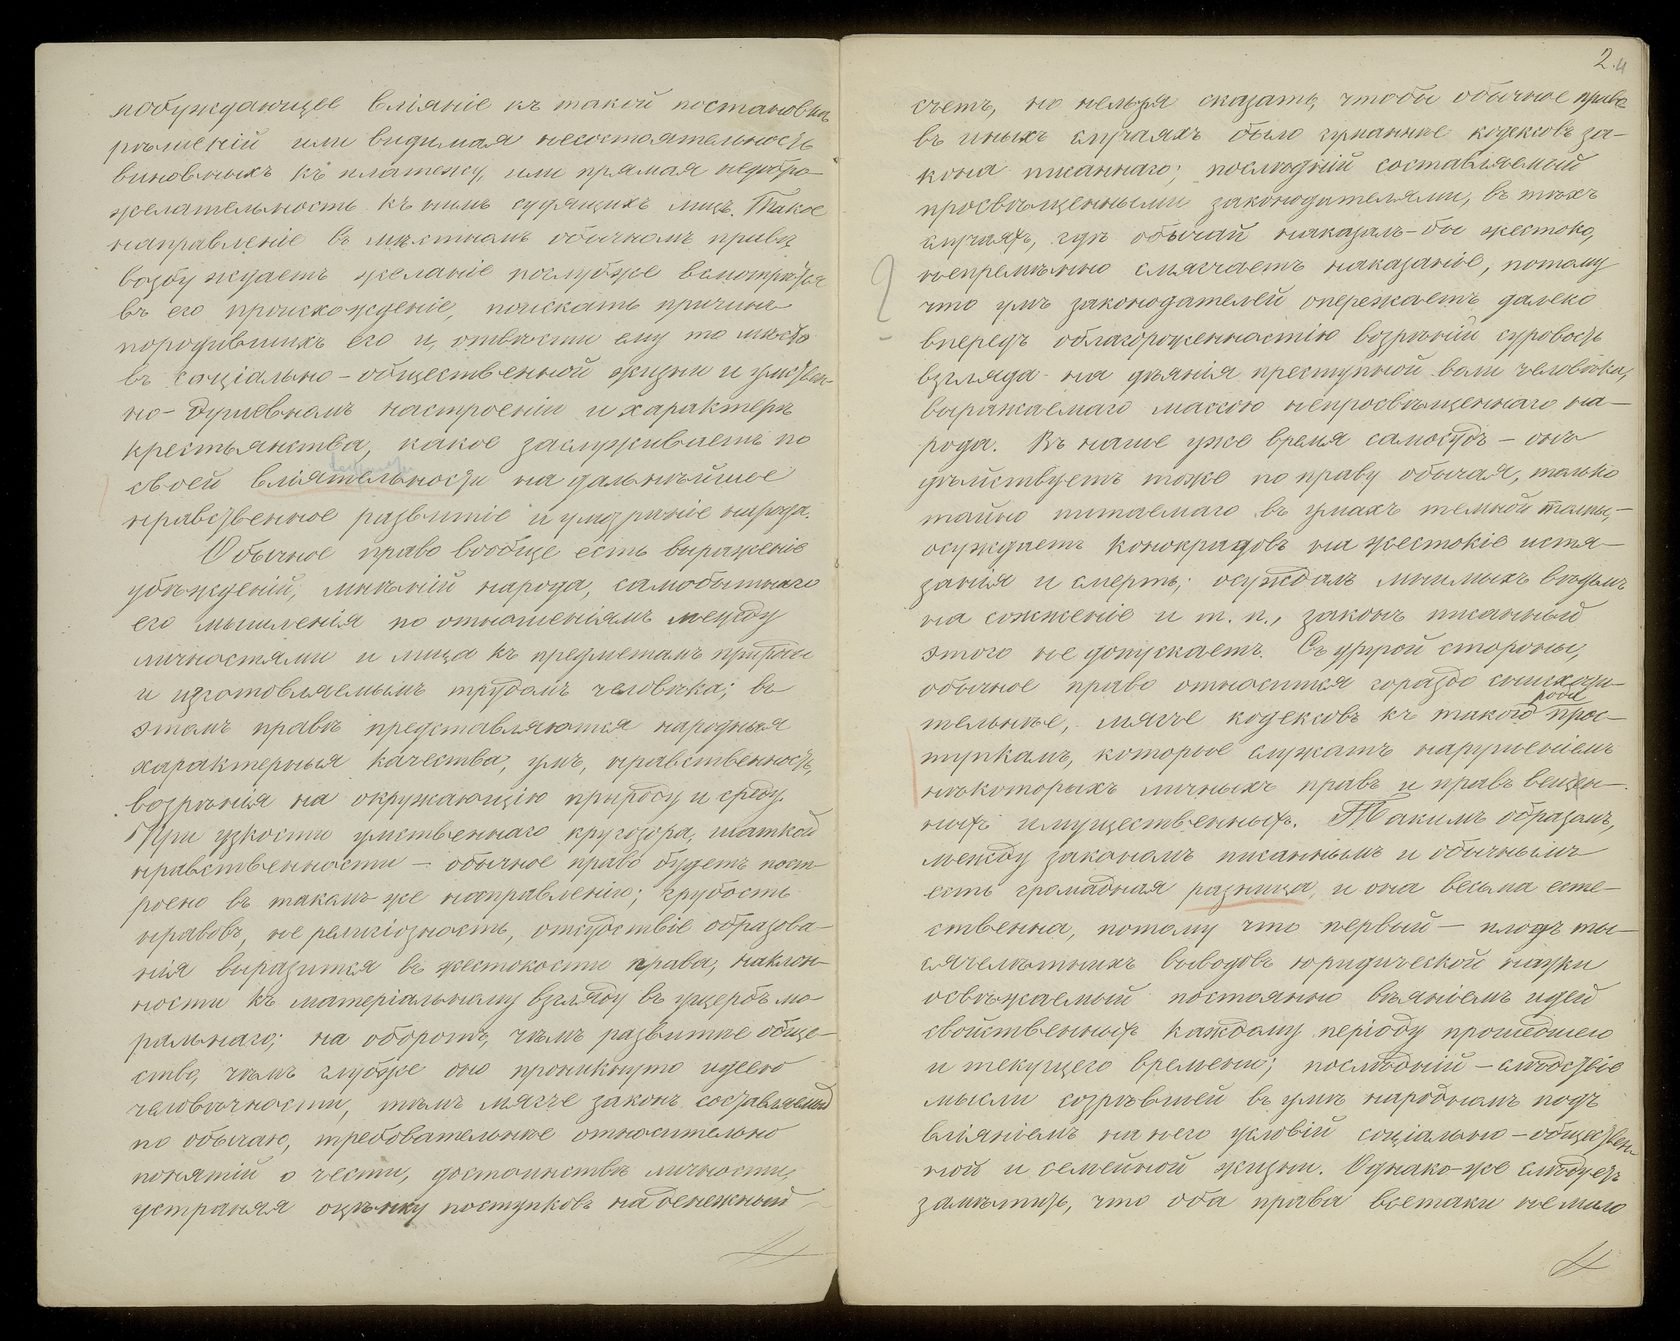 побуждающее вліяніе къ такой постановкѣ
рѣшеній или видимая несостоятельность
виновныхъ къ платежу, или прямая недобро-
желательность къ нимъ судящихъ лицъ. Такое
направленіе въ мѣстномъ обычномъ правѣ
возбуждаетъ желаніе поглубже всмотрѣться
въ его происхожденіе, поискать причины
породившихъ его и, отвѣсти ему то мѣсто
въ соціально-общественной жизни и умствен-
но-душевномъ настроеніи и характерѣ
крестьянства, какое заслуживаетъ по
своей вліятельности на дальнѣйшее
нравственное развитіе и умозрѣніе народа.
Обычное право вообще есть выраженіе
убѣжденій, мнѣній народа, самобытнаго
его мышленія по отношеніямъ между
личностями и лица къ предметамъ природы
и изготовляемымъ трудомъ человѣка; въ
этомъ правѣ представляются народныя
характерныя качества, умъ, нравственность,
воззрѣнія на окружающую природу и среду.
При узкости умственнаго кругозора, шаткой
нравственности – обычное право будетъ пост-
роено въ такомъ же направленіи; грубость
нравовъ, не религіозность, отсутствіе образова-
нія выразится въ жестокости права, наклон-
ности къ матеріальному взгляду въ ущербъ мо-
ральнаго; на оборотъ, чѣмъ развитѣе обще-
ство, чѣмъ глубже оно проникнуто идеею
человѣчности, тѣмъ мягче законъ составляемый
по обычаю, требовательнѣе относительно
понятій о чести, достоинствѣ личности,
устраняя оцѣнку поступковъ на денежный
2.4
счетъ, но нельзя сказать, чтобы обычное право
въ иныхъ случаяхъ было гуманнѣе кодексовъ за-
кона писаннаго; послѣдній составляемый
просвѣщенными законодателями, въ тѣхъ
случаяхъ, гдѣ обычай наказалъ-бы жестоко,
непремѣнно смягчаетъ наказаніе, потому
что умъ законодателей опережаетъ далеко
впередъ облагороженностію воззрѣній суровость
взгляда на дѣянія преступной воли человѣка,
выражаемаго массою непросвѣщеннаго на-
рода. Въ наше уже время самосудъ – онъ
дѣйствуетъ тоже по праву обычая, только
тайно питаемаго въ умахъ темной толпы,-
осуждаетъ конокрадовъ на жестокіе истя-
занія и смерть; осуждалъ мнимыхъ вѣдьмъ
на сожженіе и т. п., законъ писанный
этого не допускаетъ. Съ другой стороны,
обычное право относится гораздо снисходи-
тельнѣе, мягче кодексовъ къ такого рода прос-
тупкамъ, которые служатъ нарушеніемъ
нѣкоторыхъ личныхъ правъ и правъ вещен-
ныхъ имущественныхъ. Такимъ образомъ,
между закономъ писаннымъ и обычнымъ
есть громадная разница, и она весьма есте-
ственна, потому что первый – плодъ ты-
сячелѣтнихъ выводовъ юридической науки
освѣжаемый постоянно вѣяніемъ идей
свойственныхъ каждому періоду прошедшего
и текущего времени; послѣдній – слѣдствіе
мысли созрѣвшей въ умѣ народномъ подъ
вліяніемъ на него условій соціально-обществен-
ной и семейной жизни. Однако-же слѣдуетъ
замѣтить, что оба права всетаки не мало